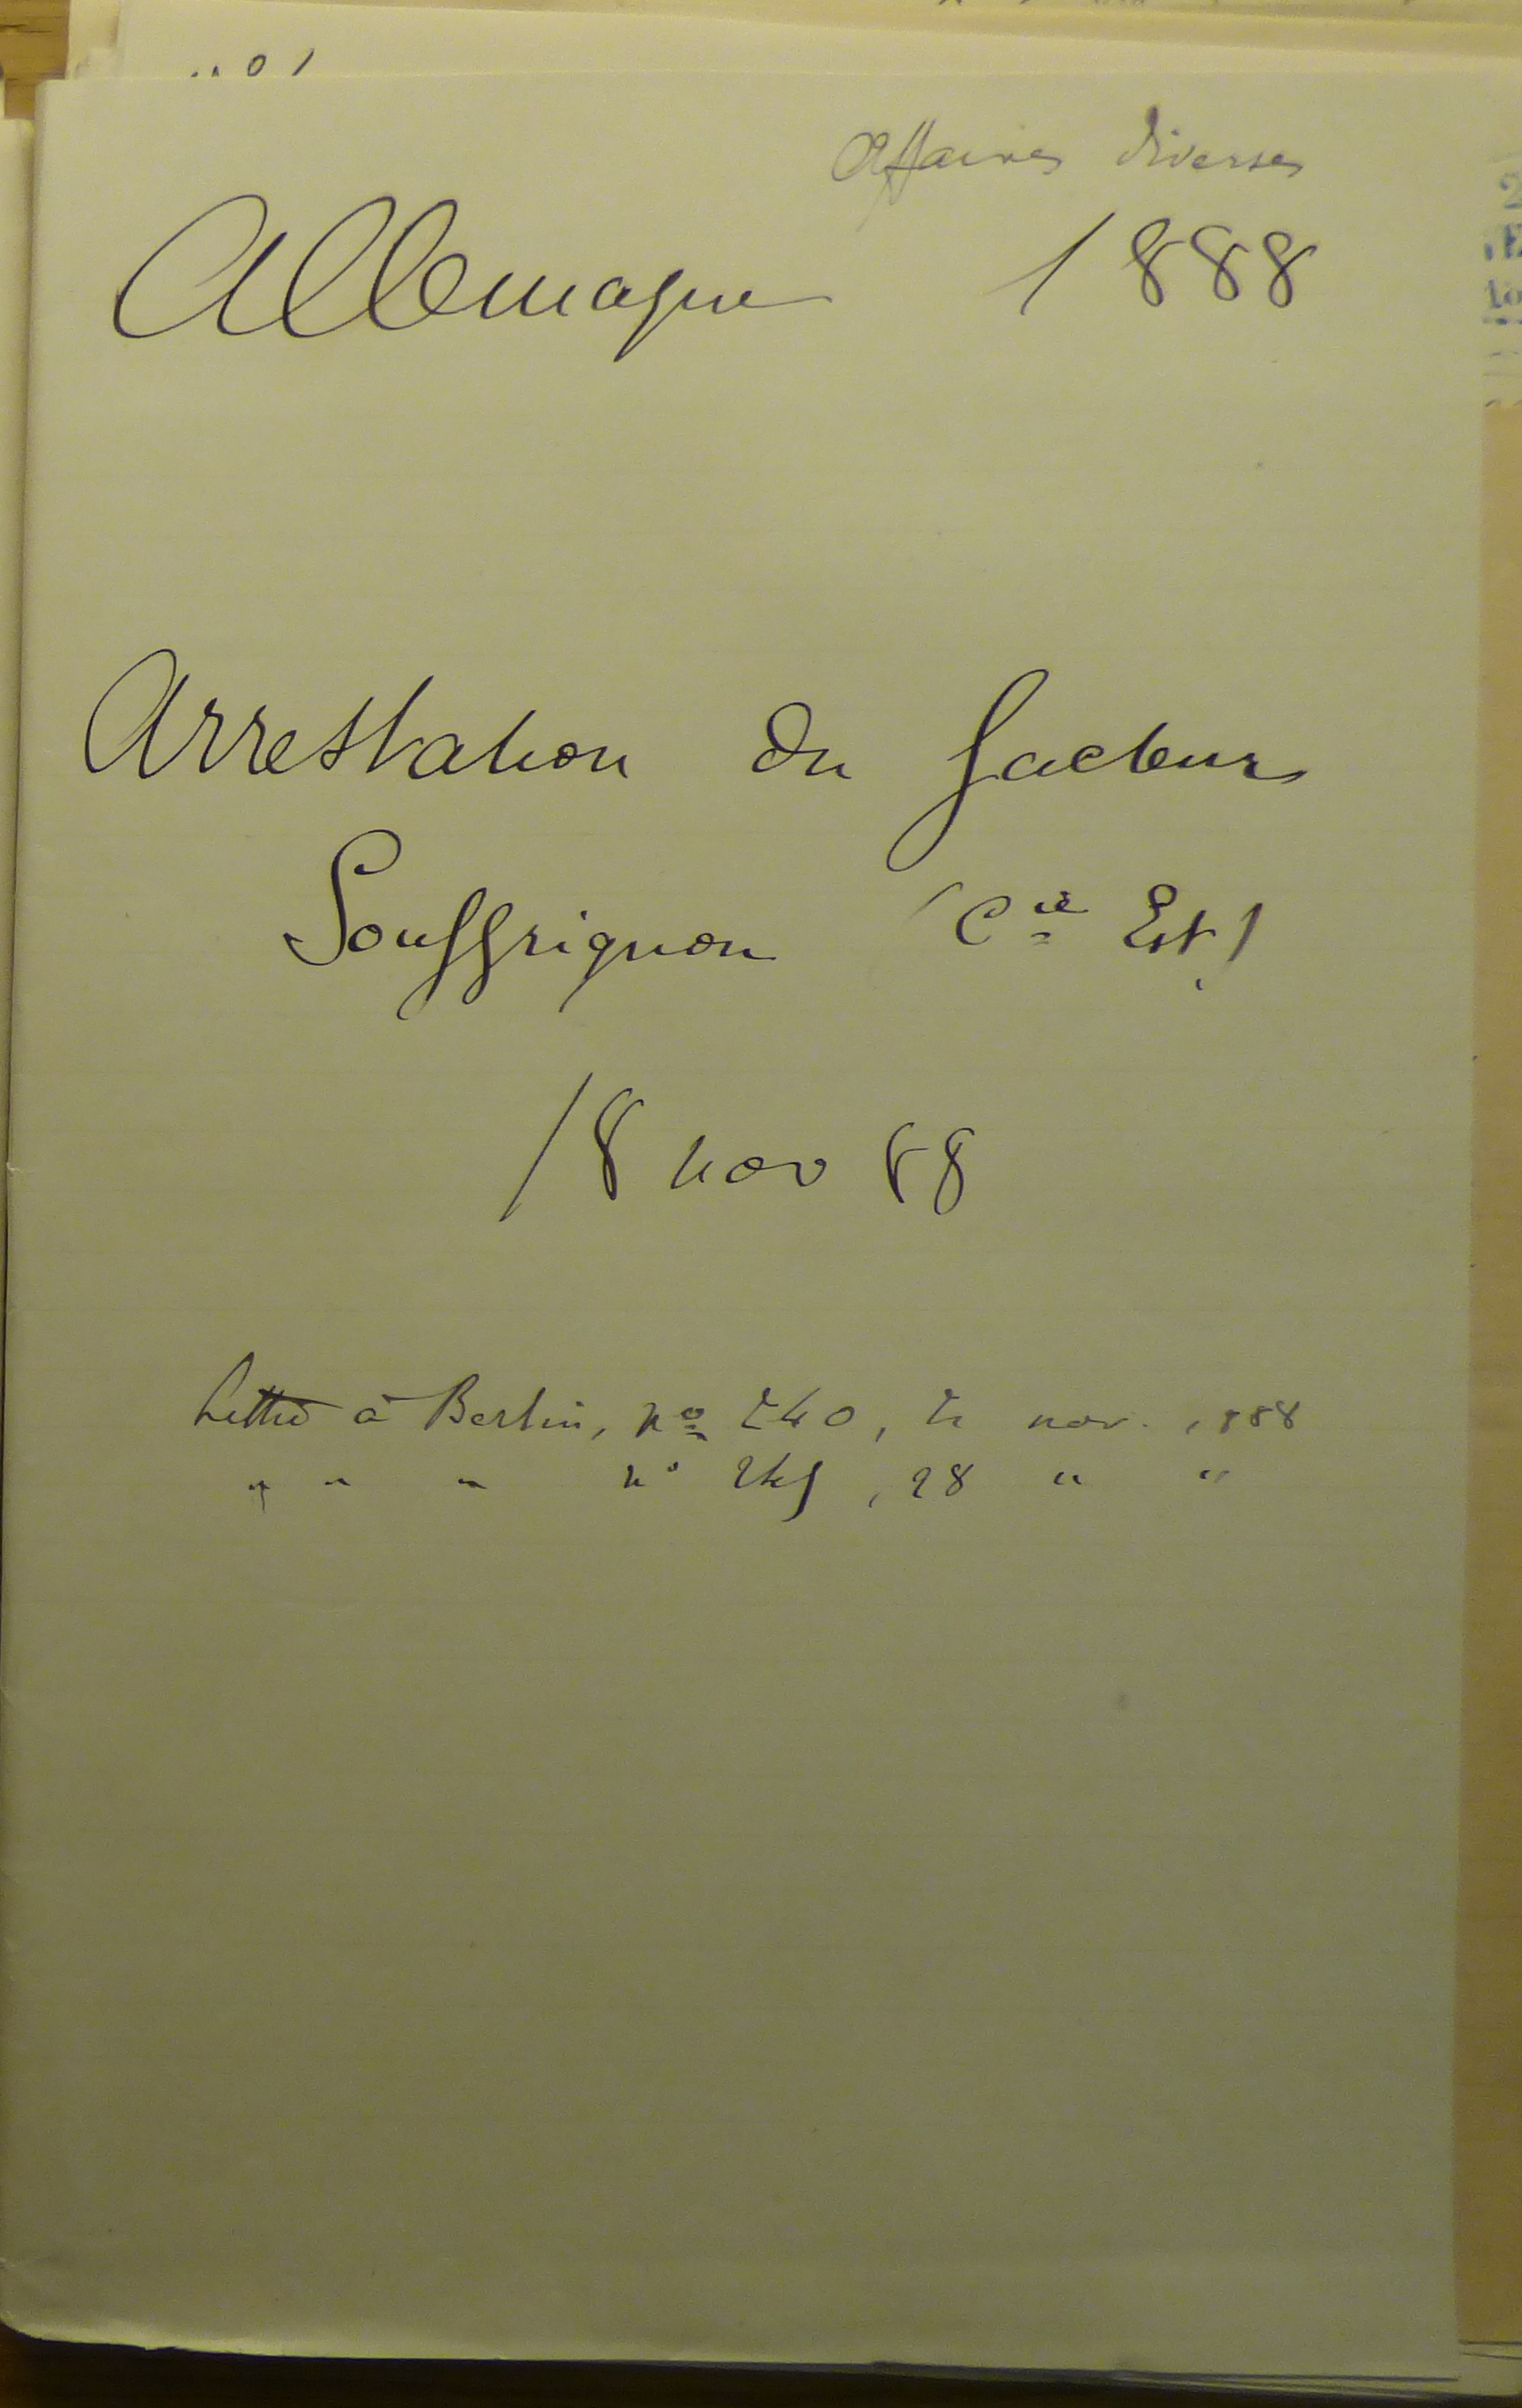 Affaires diverses
Allemagne 1888
Arrestation du facteur
Souffrignon (Cie Est)
18 nov 88
Lettre à Berlin, no 240, nov. 1888
" " " no , 28 " "